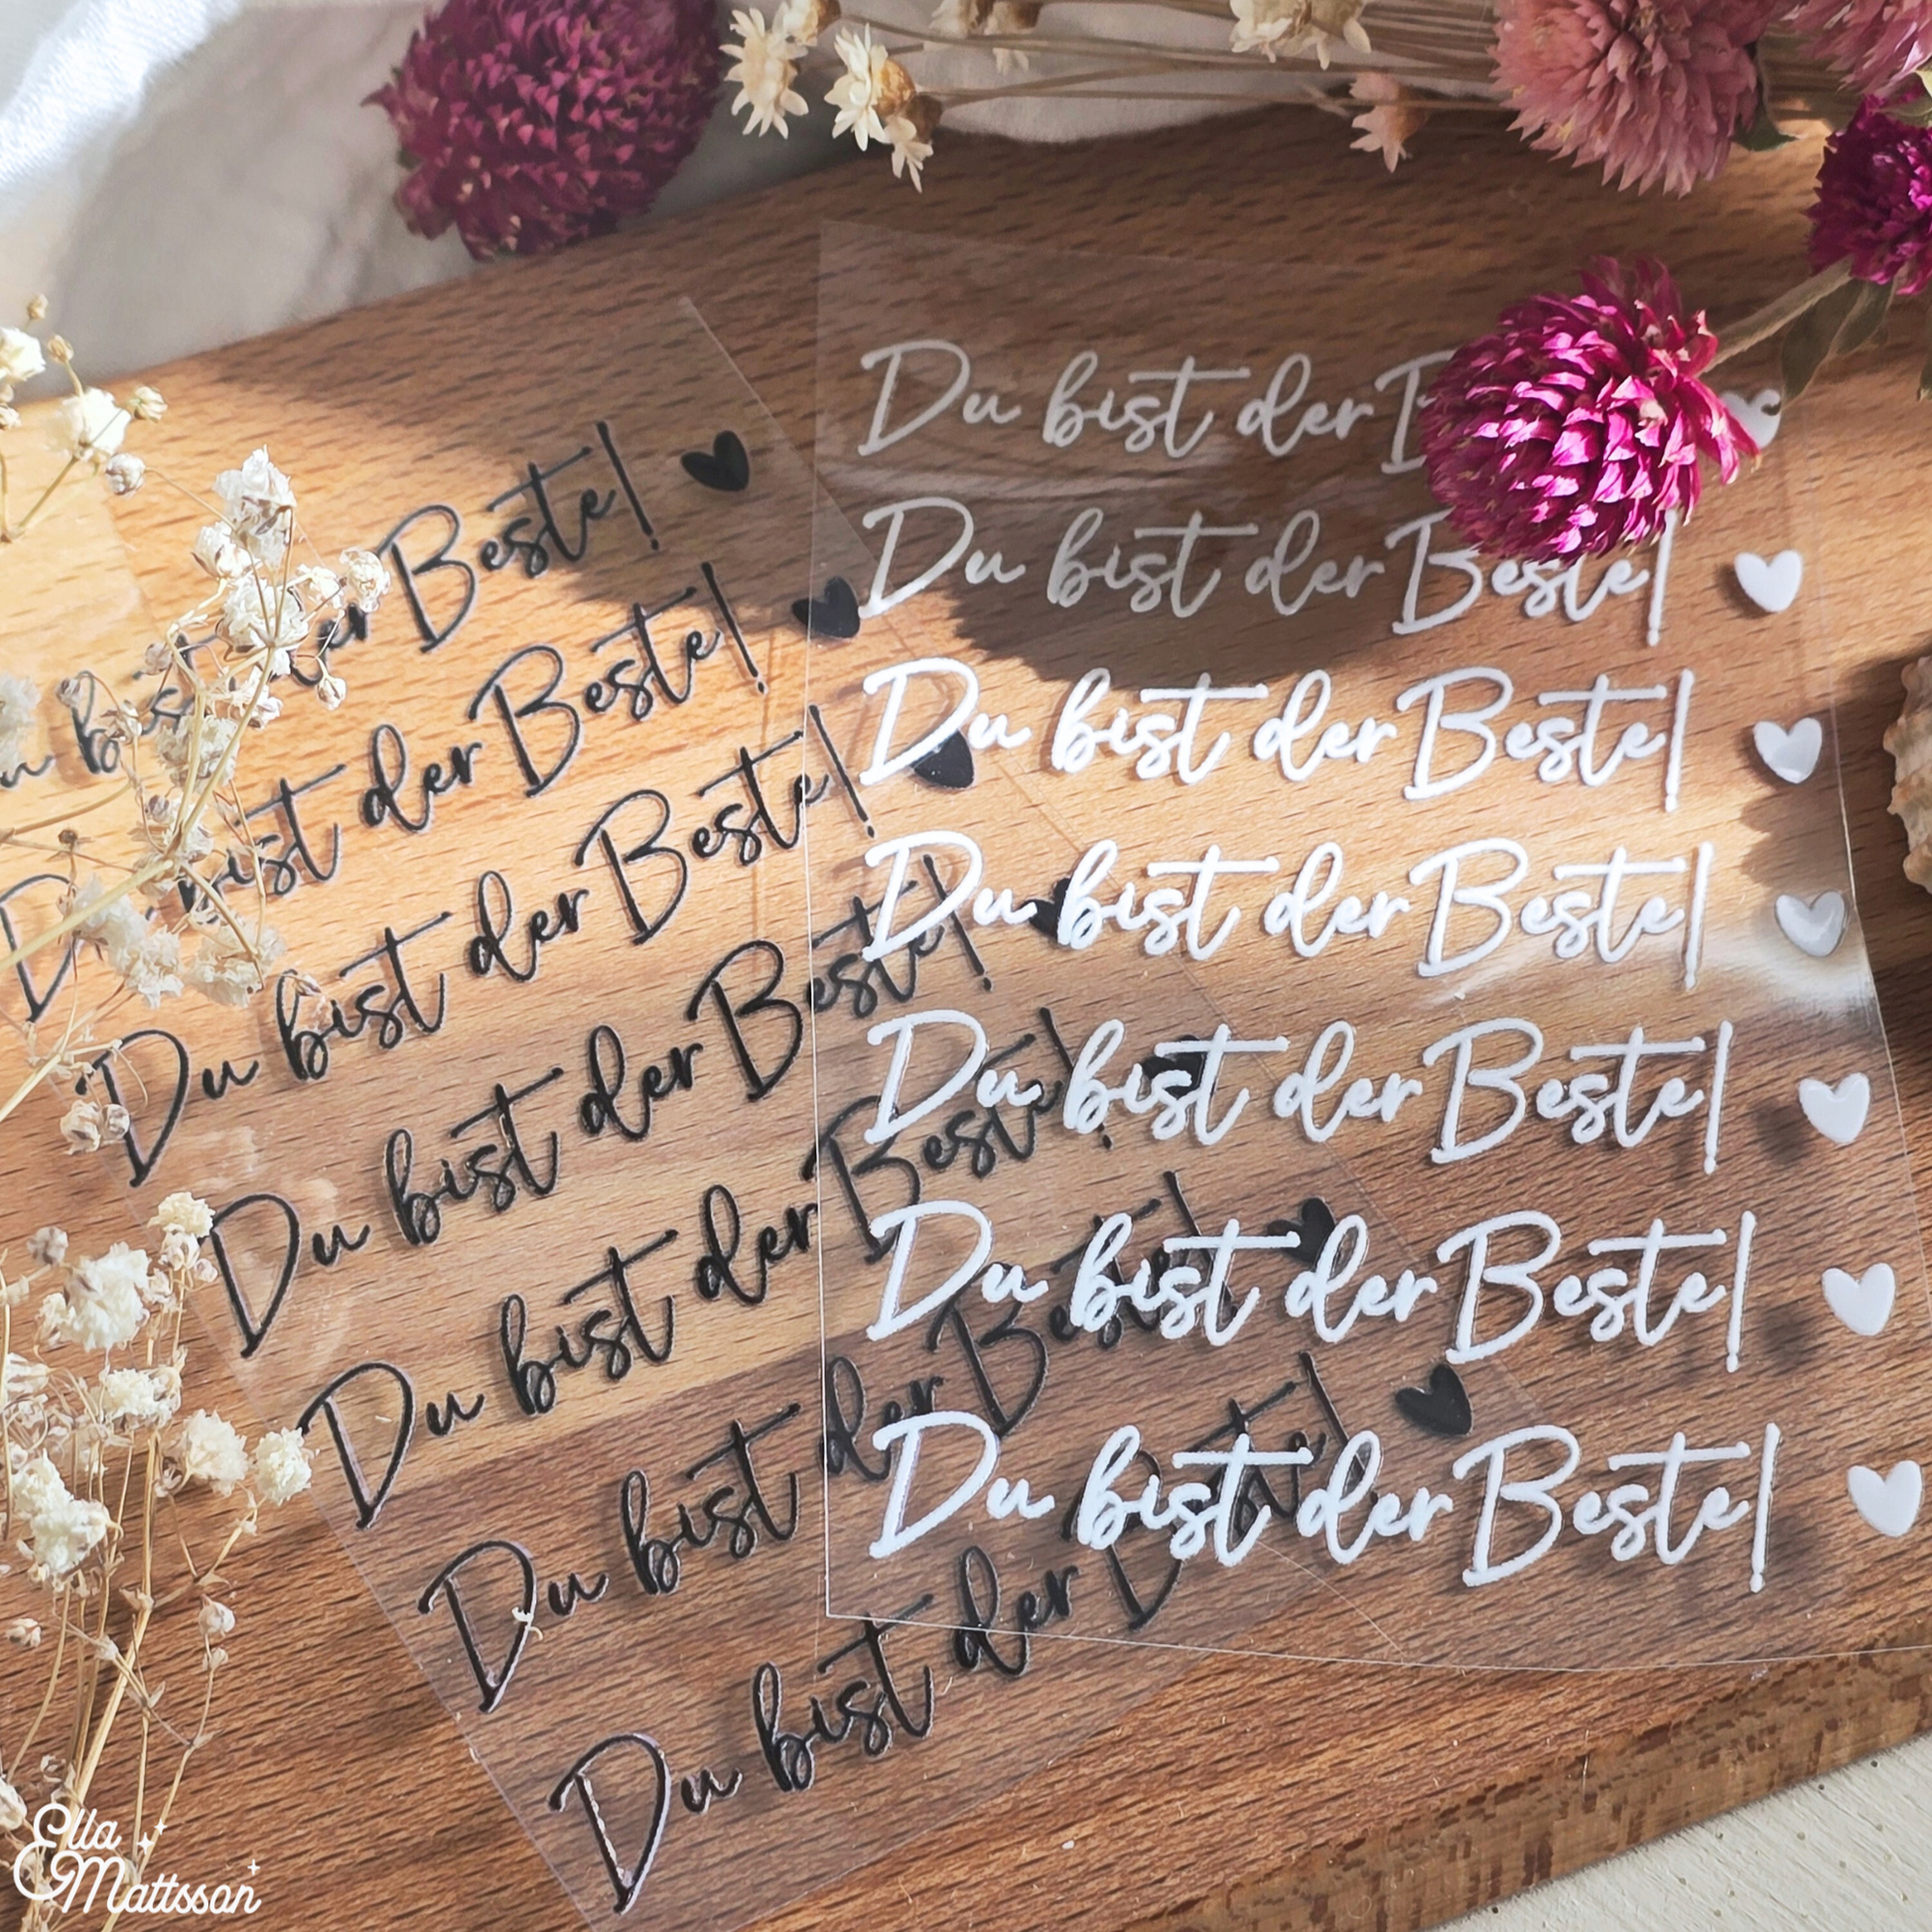 bist der Beste!
bist der Beste!
Du bist der Beste!
Du bist der Beste!
Du bist der Beste!
Du bist der Beste!
Du bist der Beste!
Du bist der
Du bist der Beste!
Du bist der Beste!
Du bist der Beste!
Du bist der Beste!
Du bist der Beste!
Du bist der Beste!
Ella
Mattsson